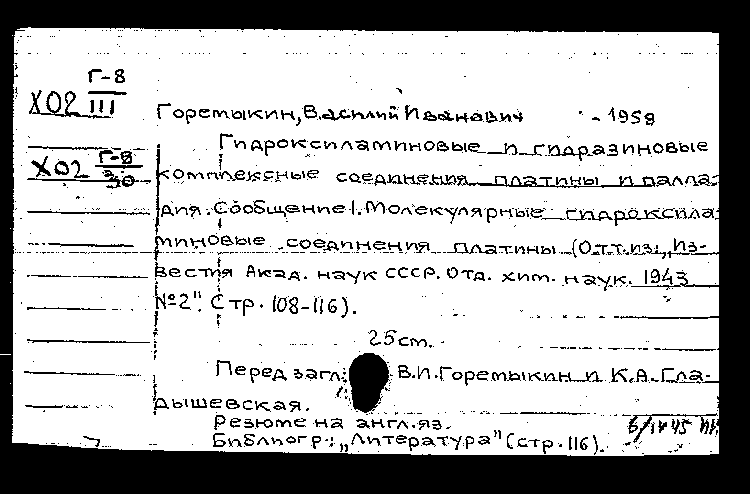 Г-8
Х02 III
Горемыкин, Василий Иванович - 1958
Гидроксиламиновые и гидразиновые
Х02 Г-8
30
комплексные соединения платины и палла-
дия. Сообщение I. Молекулярные гидроксила-
миновые соединения платины (Отт. из: „Из-
вестия Акад. наук СССР. Отд. хим. наук. 1943
№2". Стр. 108-116).
25 cm.
Перед загл.: В.И. Горемыкин и К.А. Гла-
дышевская.
Резюме на англ. яз.
Библиогр.: „Литература" (стр. 116).